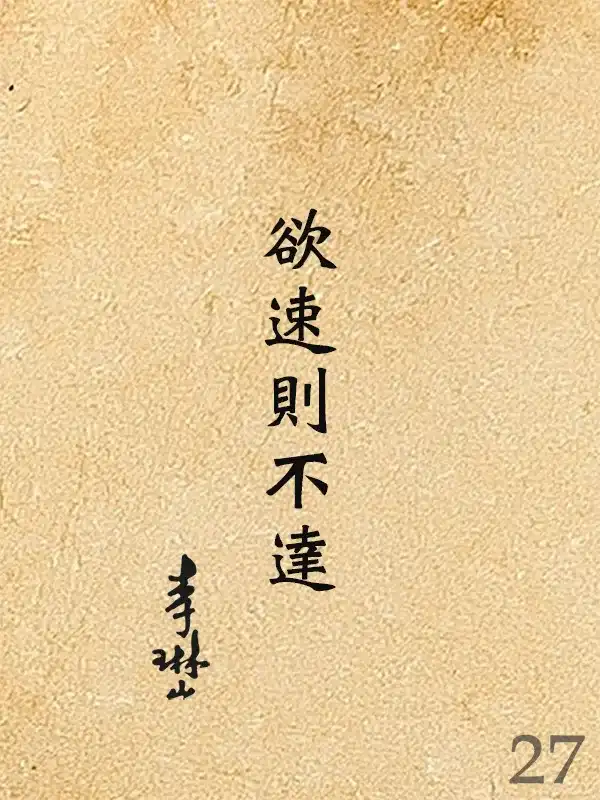 欲速則不達
李琳山
27